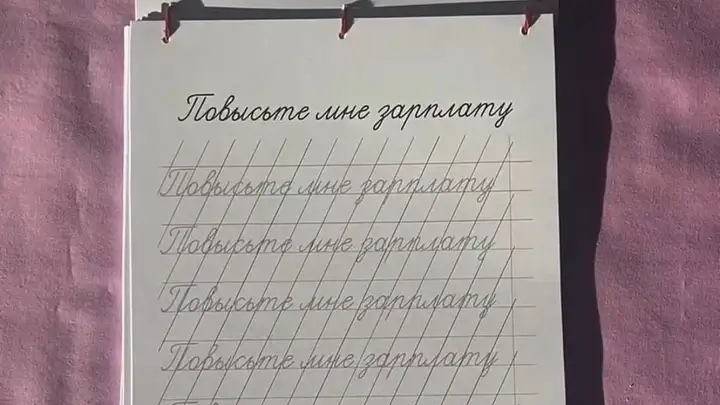 Повысьте мне зарплату
Повысьте мне зарплату
Повысьте мне зарплату
Повысьте мне зарплату
Повысьте мне зарплату